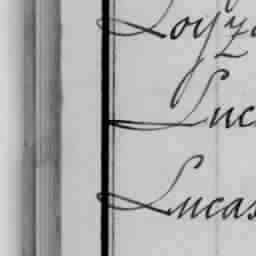 Loyza
Luc
Lucas